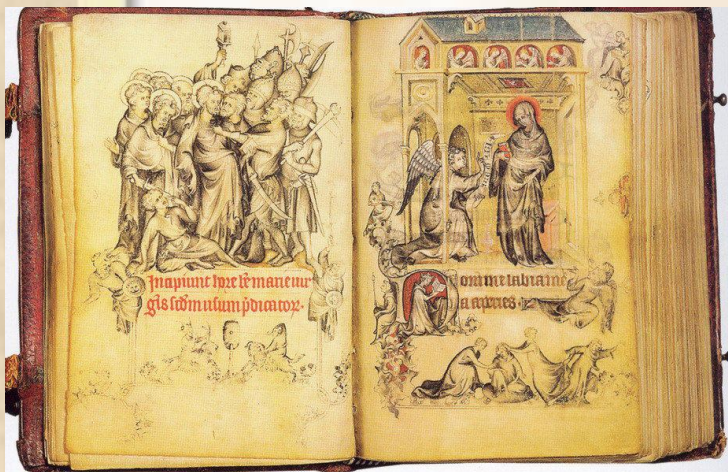 Incipiunt hore bẽ marie uir
gĩs scðm usum p̄dicator.
Domine labia me
a aperies